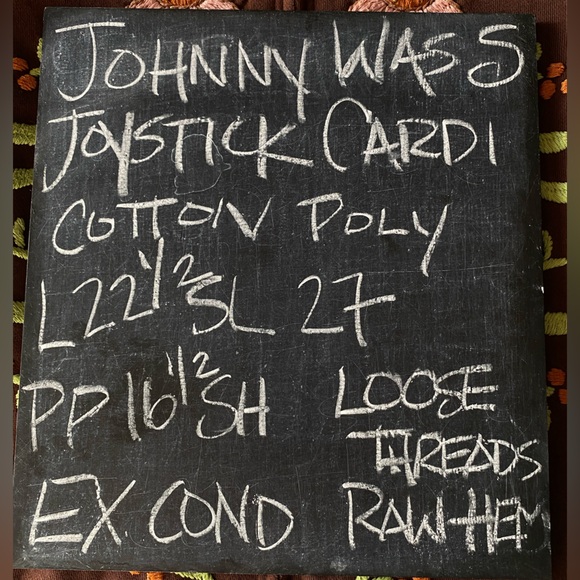 JOHNNY WAS S
JOYSTICK CARDI
COTTON POLY
L 22 1/2 SL 27
PP 16 1/2 SH LOOSE
THREADS
EX. COND RAW HEM